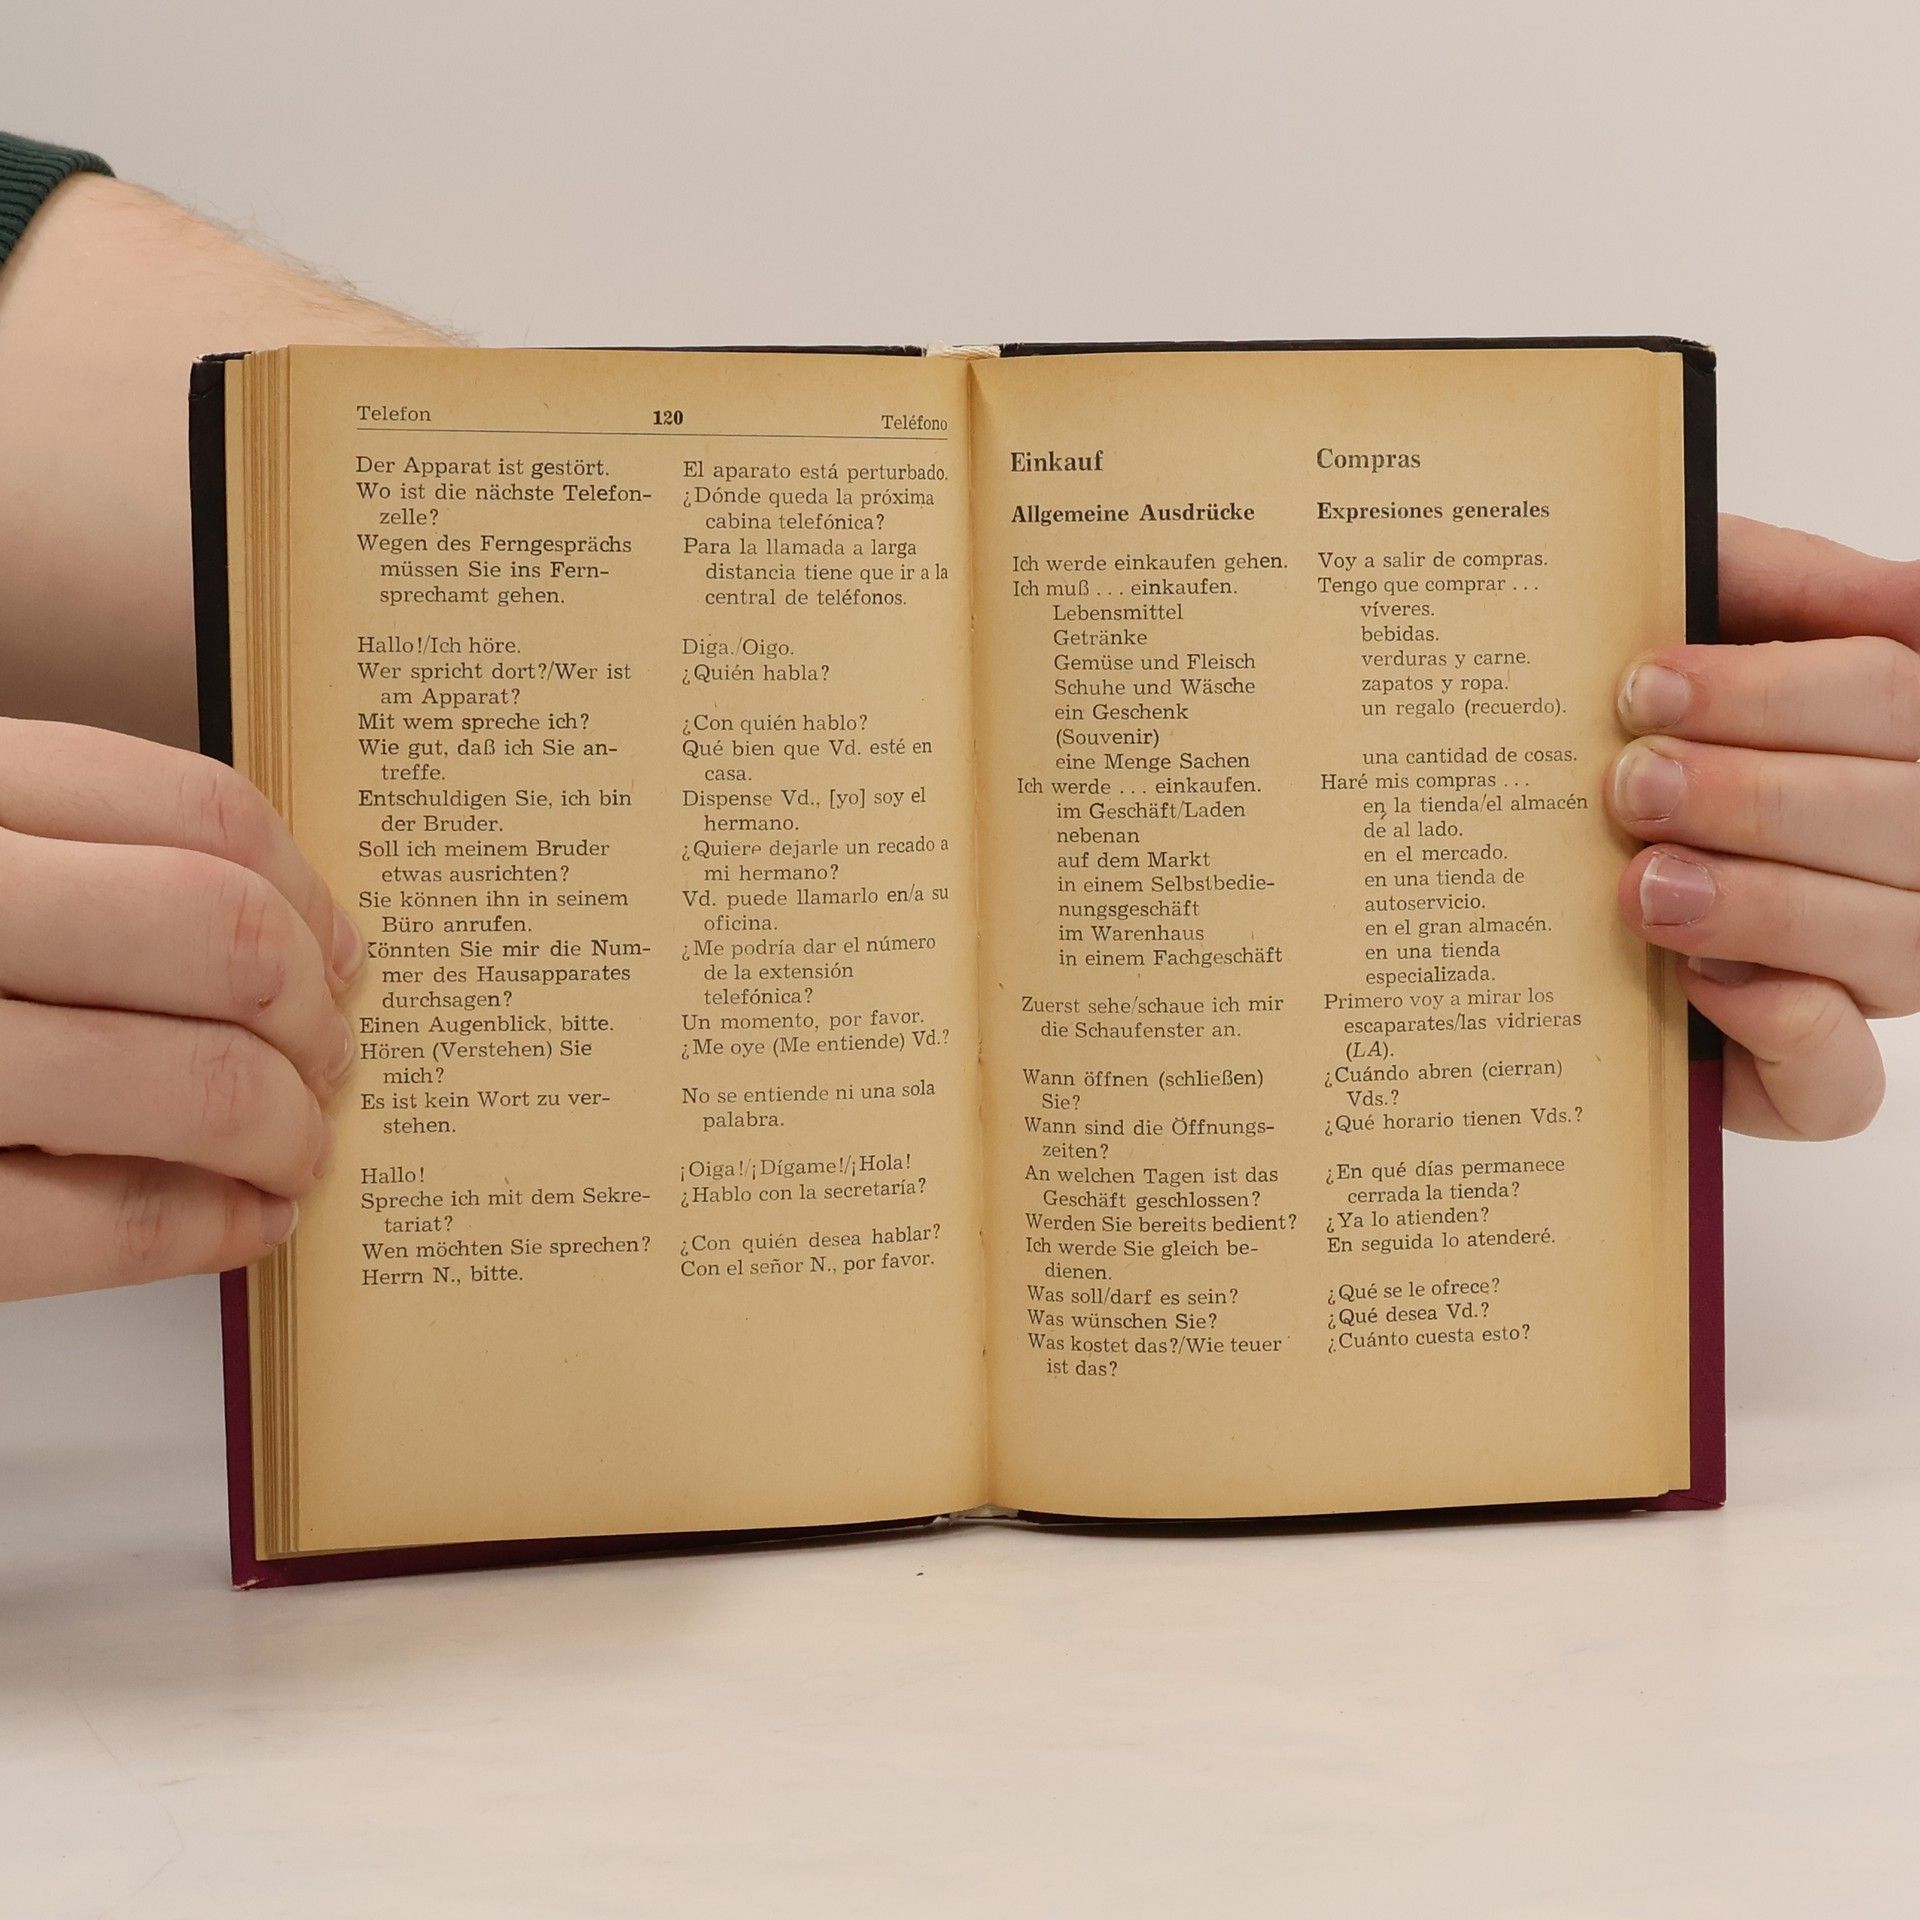 Telefon 120 Teléfono
Der Apparat ist gestört.
Wo ist die nächste Telefon-
zelle?
Wegen des Ferngesprächs
müssen Sie ins Fern-
sprechamt gehen.
Hallo!/Ich höre.
Wer spricht dort?/Wer ist
am Apparat?
Mit wem spreche ich?
Wie gut, daß ich Sie an-
treffe.
Entschuldigen Sie, ich bin
der Bruder.
Soll ich meinem Bruder
etwas ausrichten?
Sie können ihn in seinem
Büro anrufen.
Könnten Sie mir die Num-
mer des Hausapparates
durchsagen?
Einen Augenblick, bitte.
Hören (Verstehen) Sie
mich?
Es ist kein Wort zu ver-
stehen.
Hallo!
Spreche ich mit dem Sekre-
tariat?
Wen möchten Sie sprechen?
Herrn N., bitte.
El aparato está perturbado.
¿Dónde queda la próxima
cabina telefónica?
Para la llamada a larga
distancia tiene que ir a la
central de teléfonos.
Diga./Oigo.
¿Quién habla?
¿Con quién hablo?
Qué bien que Vd. esté en
casa.
Dispense Vd., [yo] soy el
hermano.
¿Quiere dejarle un recado a
mi hermano?
Vd. puede llamarlo en/a su
oficina.
¿Me podría dar el número
de la extensión
telefónica?
Un momento, por favor.
¿Me oye (Me entiende) Vd.?
No se entiende ni una sola
palabra.
¡Oiga!/¡Dígame!/¡Hola!
¿Hablo con la secretaría?
¿Con quién desea hablar?
Con el señor N., por favor.
Einkauf
Allgemeine Ausdrücke
Ich werde einkaufen gehen.
Ich muß . . . einkaufen.
Lebensmittel
Getränke
Gemüse und Fleisch
Schuhe und Wäsche
ein Geschenk
(Souvenir)
eine Menge Sachen
Ich werde . . . einkaufen.
im Geschäft/Laden
nebenan
auf dem Markt
in einem Selbstbedie-
nungsgeschäft
im Warenhaus
in einem Fachgeschäft
Zuerst sehe/schaue ich mir
die Schaufenster an.
Wann öffnen (schließen)
Sie?
Wann sind die Öffnungs-
zeiten?
An welchen Tagen ist das
Geschäft geschlossen?
Werden Sie bereits bedient?
Ich werde Sie gleich be-
dienen.
Was soll/darf es sein?
Was wünschen Sie?
Was kostet das?/Wie teuer
ist das?
Compras
Expresiones generales
Voy a salir de compras.
Tengo que comprar . . .
víveres.
bebidas.
verduras y carne.
zapatos y ropa.
un regalo (recuerdo).
una cantidad de cosas.
Haré mis compras . . .
en la tienda/el almacén
de al lado.
en el mercado.
en una tienda de
autoservicio.
en el gran almacén.
en una tienda
especializada.
Primero voy a mirar los
escaparates/las vidrieras
(LA).
¿Cuándo abren (cierran)
Vds.?
¿Qué horario tienen Vds.?
¿En qué días permanece
cerrada la tienda?
¿Ya lo atienden?
En seguida lo atenderé.
¿Qué se le ofrece?
¿Qué desea Vd.?
¿Cuánto cuesta esto?